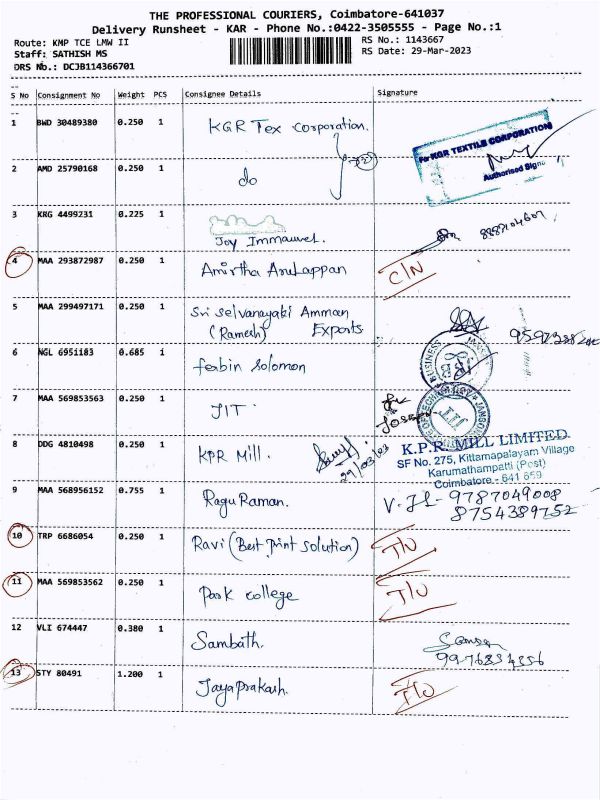 THE PROFESSIONAL COURIERS, Coimbatore-641037
Delivery Runsheet - KAR - Phone No.:0422-3505555 - Page No.:1
Route: KMP TCE LMW II RS No.: 1143667
Staff: SATHISH MS RS Date: 29-Mar-2023
DRS No.: DCJB114366701
S No Consignment No Weight PCS Consignee Details Signature
1 BWD 30489380 0.250 1 KGR Tex Corporation.
For KGR TEXTILE CORPORATION
Authorised Sign
2 AMD 25790168 0.250 1 do
3 KRG 4499231 0.225 1 Joy Immauvel.
4 MAA 293872987 0.250 1 Amirtha Arulappan C/N
5 MAA 299497171 0.250 1 Sri Selvanayaki Amman
(Ramesh) Exports
6 NGL 6951183 0.685 1 febin Solomon
BUSINESS
7 MAA 569853563 0.250 1 JIT
8 DDG 4810498 0.250 1 KPR Mill. 29/03/23
K.P.R. MILL LIMITED
SF No. 275, Kittampalayam Village
Karumathampatti (Post)
Coimbatore - 641 659
9 MAA 568956152 0.755 1 Ragu Raman. 9787049008
8754389752
10 TRP 6686054 0.250 1 Ravi (Best Print Solution) I/O
11 MAA 569853562 0.250 1 Park college I/O
12 VLI 674447 0.380 1 Sambath.
13 STY 80491 1.200 1 Jayaprakash. I/O